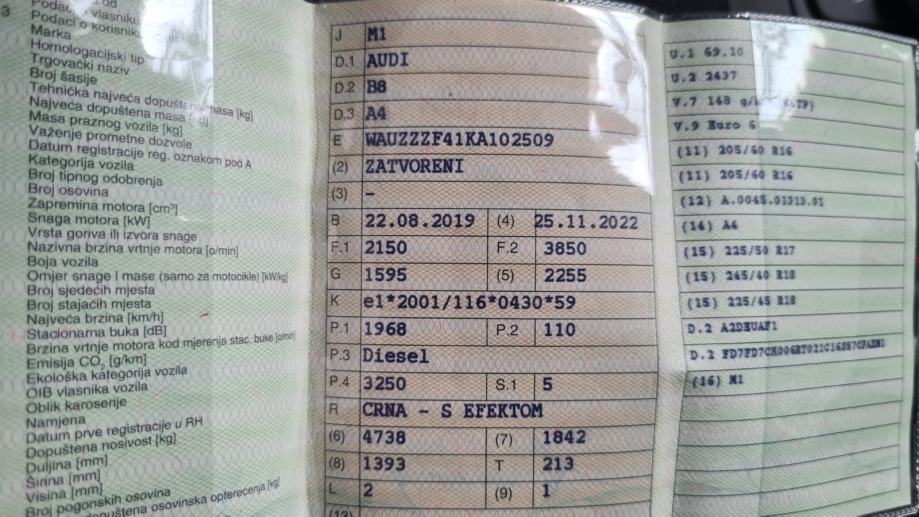 3
Podaci o korisniku
Marka
Homologacijski tip
Trgovački naziv
Broj šasije
Tehnička najveća dopuštena masa [kg]
Najveća dopuštena masa [kg]
Masa praznog vozila [kg]
Važenje prometne dozvole
Datum registracije reg. oznakom pod A
Kategorija vozila
Broj tipnog odobrenja
Broj osovina
Zapremina motora [cm³]
Snaga motora [kW]
Vrsta goriva ili izvora snage
Nazivna brzina vrtnje motora [o/min]
Boja vozila
Omjer snage i mase (samo za motocikle) [kW/kg]
Broj sjedećih mjesta
Broj stajaćih mjesta
Najveća brzina [km/h]
Stacionarna buka [dB]
Brzina vrtnje motora kod mjerenja stac. buke [o/min]
Emisija CO₂ [g/km]
Ekološka kategorija vozila
OIB vlasnika vozila
Oblik karoserije
Namjena
Datum prve registracije u RH
Dopuštena nosivost [kg]
Duljina [mm]
Širina [mm]
Visina [mm]
Broj pogonskih osovina
dopuštena osovinska opterećenja [kg]
J M1
D.1 AUDI
D.2 B8
D.3 A4
E WAUZZZF41KA102509
(2) ZATVORENI
(3) –
B 22.08.2019 (4) 25.11.2022
F.1 2150 F.2 3850
G 1595 (5) 2255
K e1*2001/116*0430*59
P.1 1968 P.2 110
P.3 Diesel
P.4 3250 S.1 5
R CRNA - S EFEKTOM
(6) 4738 (7) 1842
(8) 1393 T 213
L 2 (9) 1
(13)
U.1 69.10
U.2 2437
V.7 148
V.9 Euro 6
(11) 205/60 R16
(11) 205/60 R16
(12) A.0045.01313.01
(14) A4
(15) 225/50 R17
(15) 245/40 R18
(15) 225/45 R18
D.2 A2DEUAF1
D.2
(16) M1